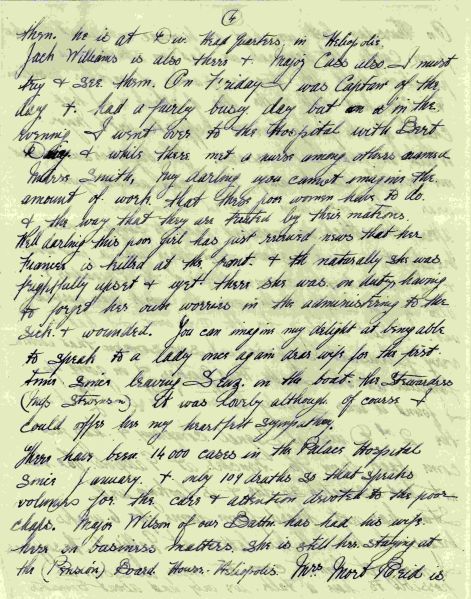 6
them. he is at Div. Head quarters, in Heliopolis.
Jack Williams is also there & Major Cass also I must
try & see them. On Friday I was Captain of the
day & had a fairly busy day but in the
evening I went over to the Hospital with Bert
& while there met a nurse among others named
Nurse Smith, my darling you cannot imagine the
amount of work that these poor women have to do.
& the way that they are treated by their matrons.
Well darling this poor girl has just received news that her
fiancee is killed at the front. & tho naturally she was
frightfully upset & yet there she was on duty having
to forget her own worries in the administering to the
sick & wounded. You can imagine my delight at being able
to speak to a lady once again dear wife for the first
time since leaving Suez. on the boat. the Stewardess
(Mrs Stevenson). It was lovely although of course I
could offer her my heartfelt sympathy.
There have been 14000 cases in the Palace Hospital
since January. & only 109 deaths so that speaks
volumes for the care & attention devoted to the poor
chaps. Major Wilson of our Battn. has had his wife
here on business matters. she is still here staying at
the (Pension) Board House. Heliopolis. Mrs Mort Reid is